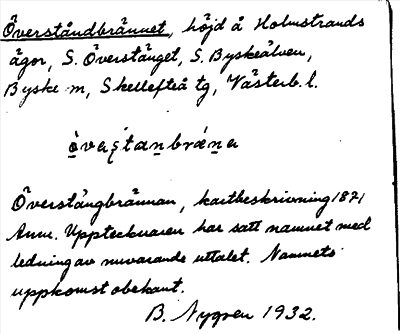 Överståndbrännet, höjd å Holmstrands
ägor, S. Överstånget, S. Byskeälven,
Byske m, Skellefteå tg, Västerb. l.
Överstångbrännan, kartbeskrivning 1871
Anm. Upptecknaren har satt namnet med
ledning av nuvarande uttalet. Namnets
uppkomst obekant.
B. Nygren 1932.